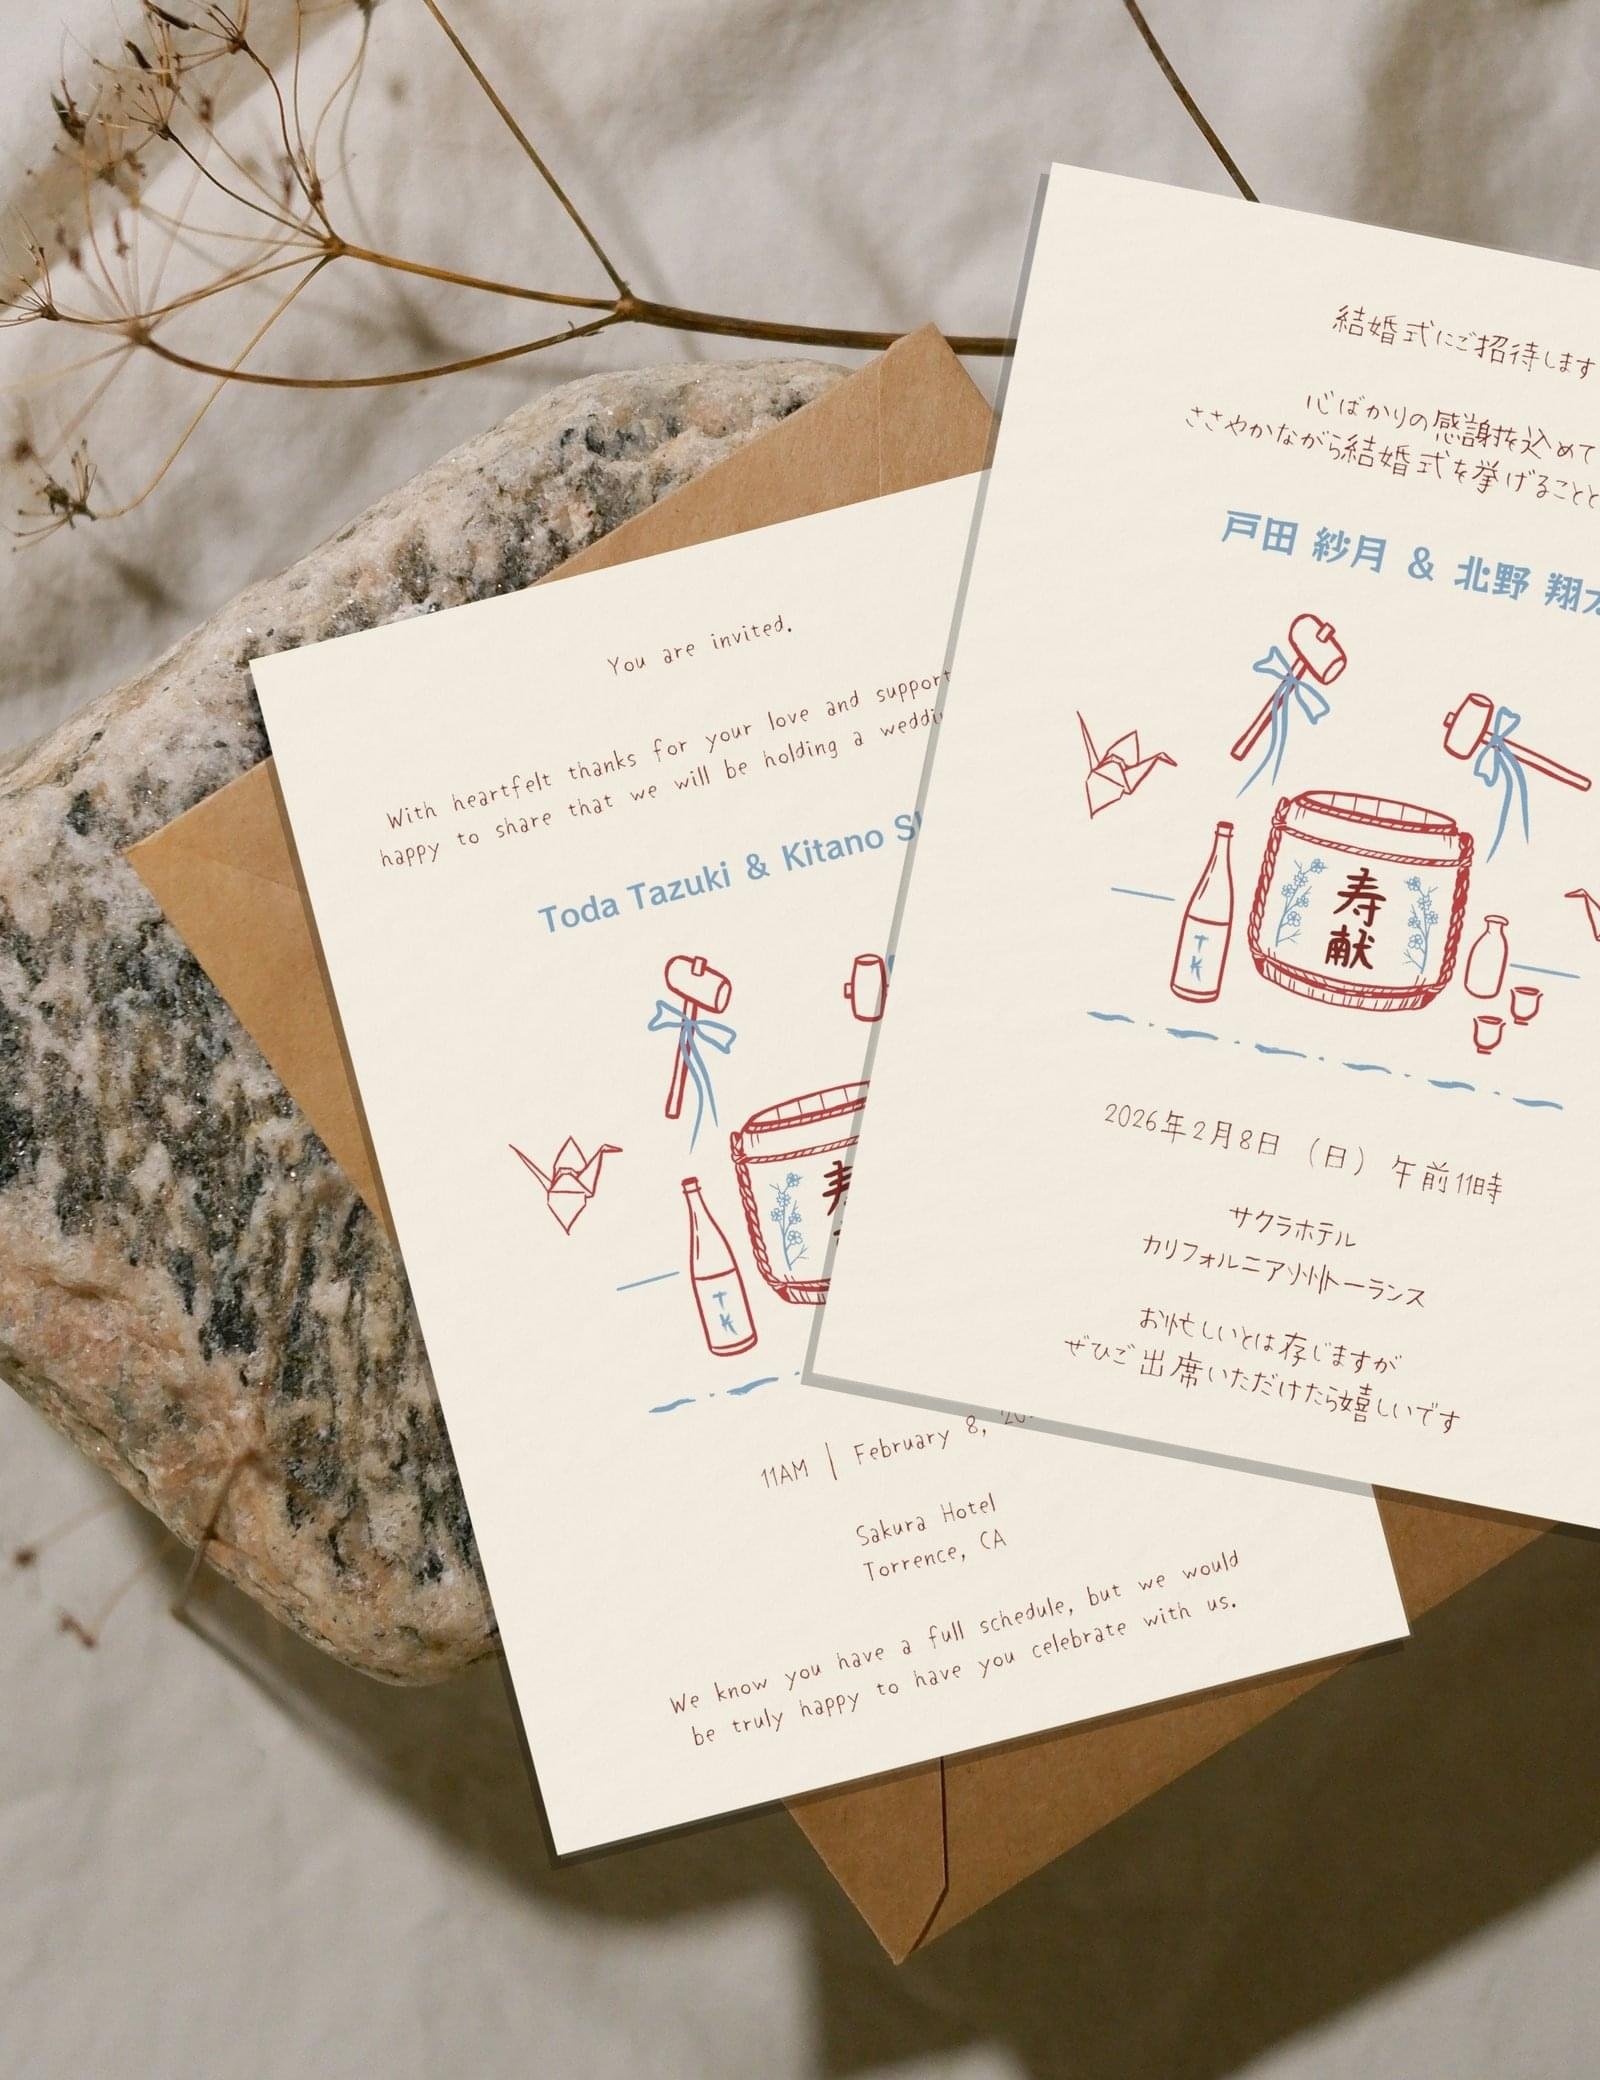 You are invited.
With heartfelt thanks for your love and support
happy to share that we will be holding a
Toda Tazuki & Kitano
TK
11AM | February 8,
Sakura Hotel
Torrence, CA
We know you have a full schedule, but we would
be truly happy to have you celebrate with us.
結婚式にご招待します
心ばかりの感謝を込めて
ささやかながら結婚式を挙げること
戸田 紗月 & 北野 翔
寿
献
TK
2026年2月8日 (日) 午前11時
サクラホテル
カリフォルニア州トーランス
お忙しいとは存じますが
ぜひご出席いただけたら嬉しいです